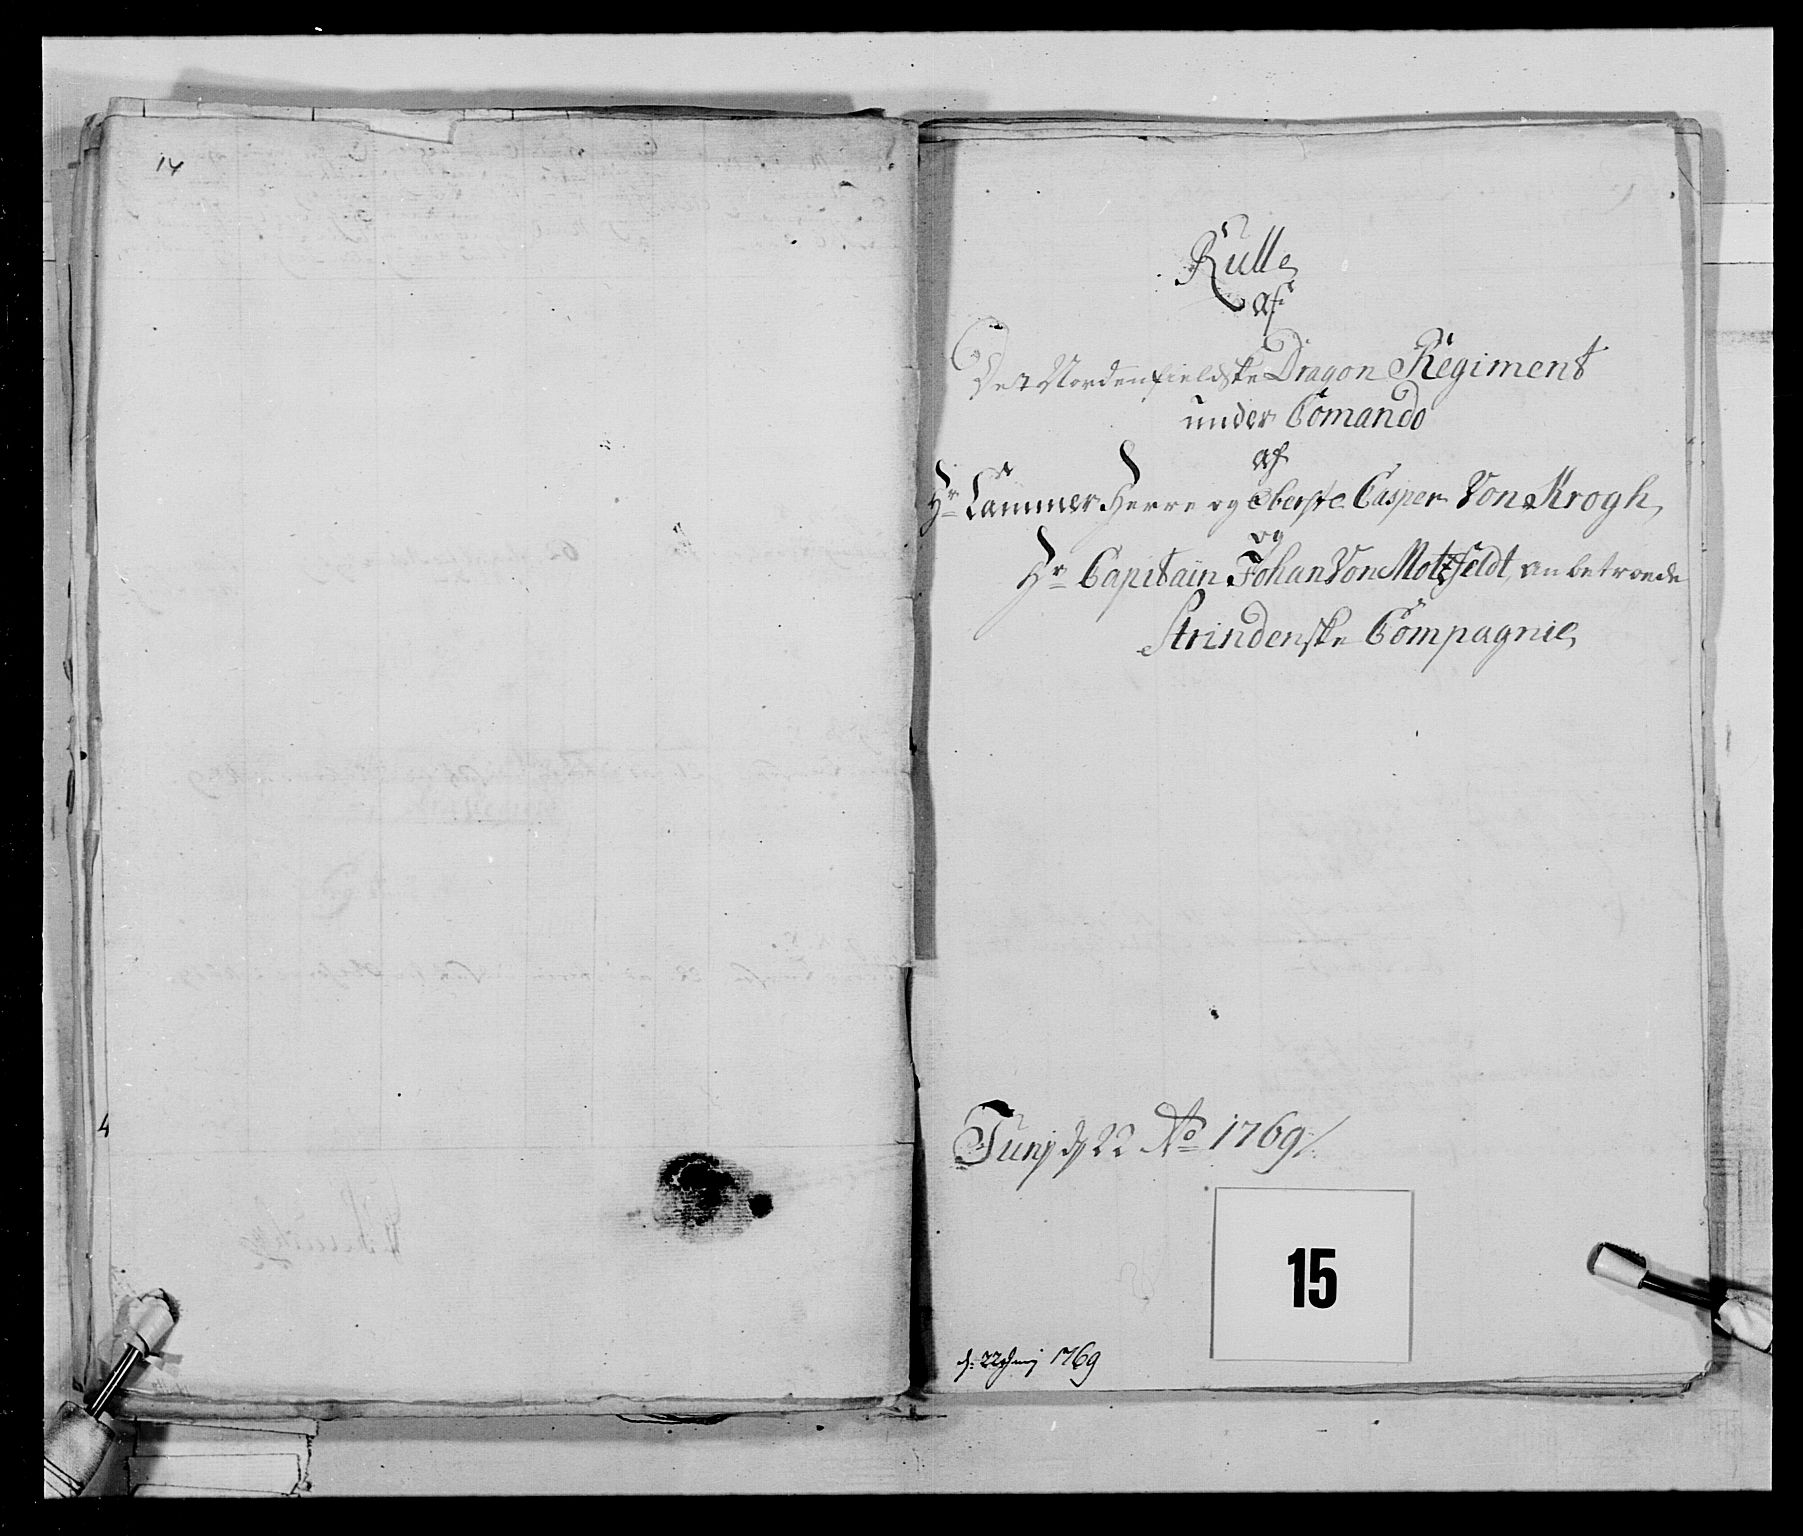 14
Rulle
af
Det Nordenfieldske Dragon Regiment
under Comando
af
Hr Cammer Herre og Oberste Casper Von Krogh,
og
Hr Capitain Johan Von Motzfeldt, anbetroede
Strindenske Compagnie,
4
Junj d 22 Ao 1769/
15
d. 22 Junij 1769